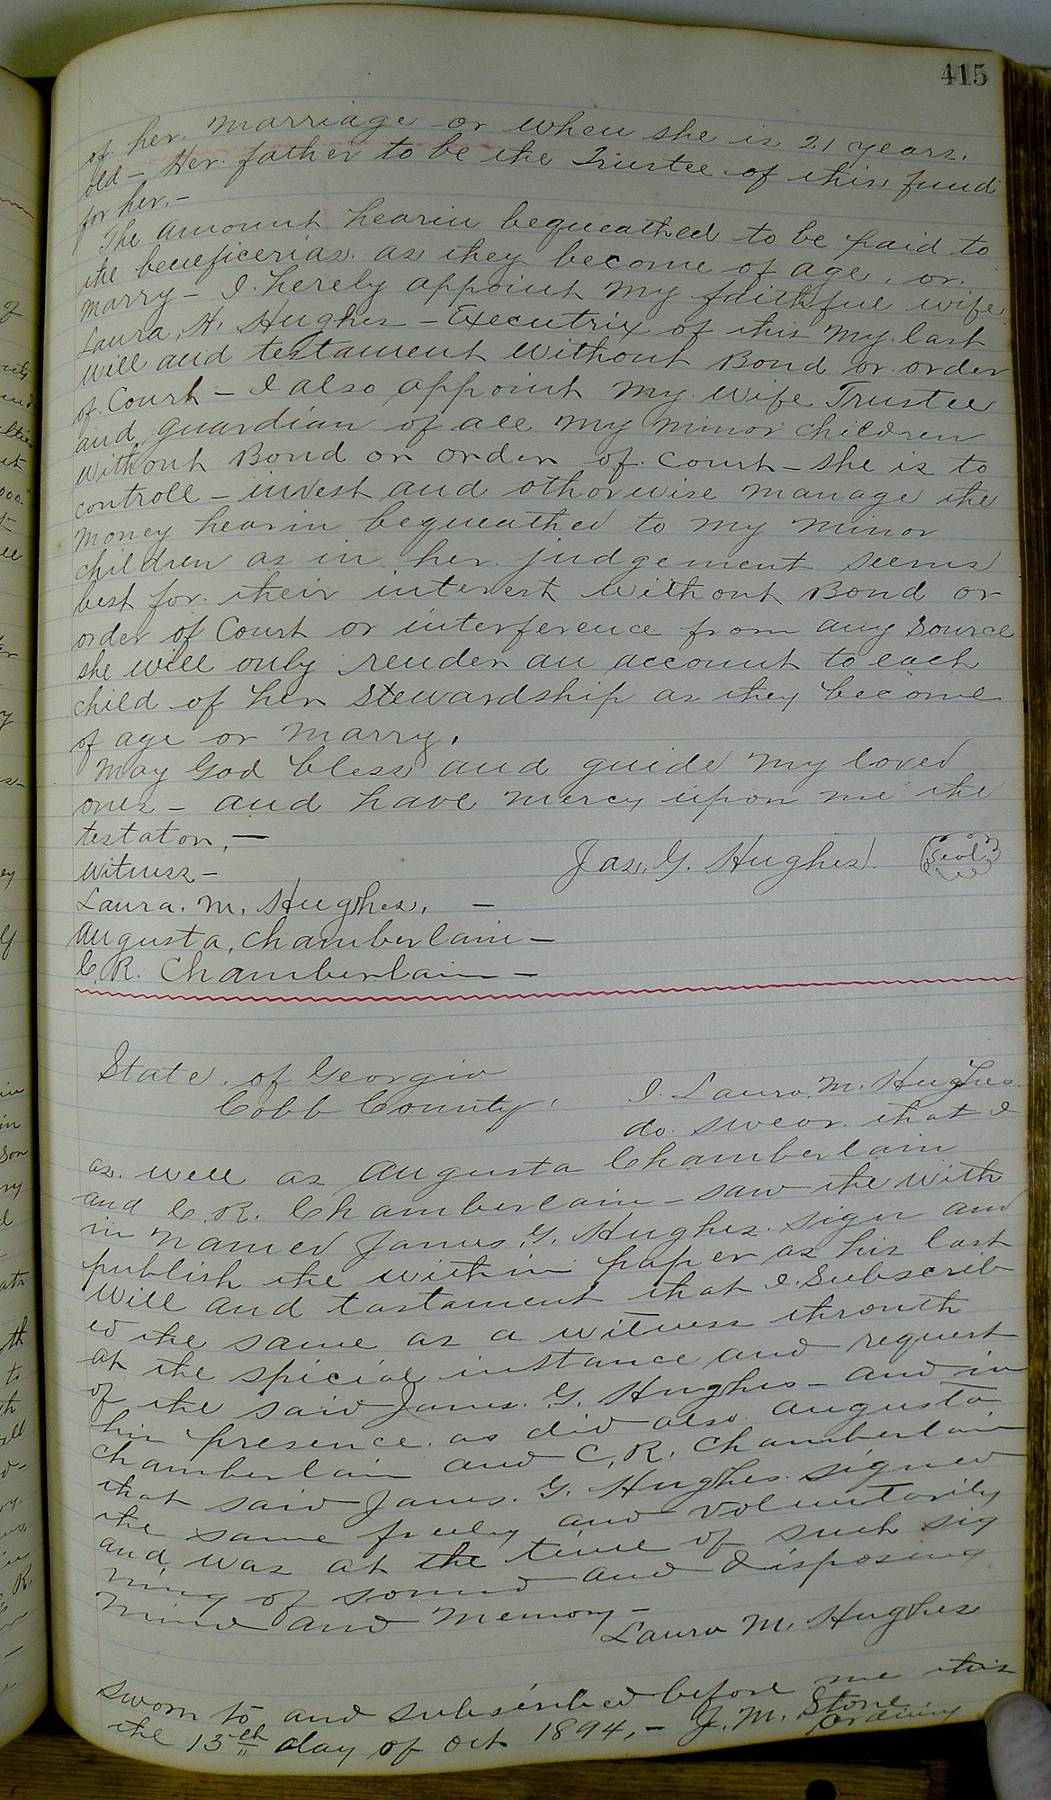 415
of her marriage or when she is 21 years.
old - Her father to be the Trustee of this fund
for her. -
The amount hearin bequeathed to be paid to
the beneficerias as they become of age, or
marry - I herely appoint my faithful wife
Laura, H. Hughes - Executrix of this my last
will and testament without Bond or order
of Court - I also appoint my wife Trustee
and guardian of all my minor children
without Bond or order of Court - she is to
controll - invest and othorwise manage the
money hearin bequeathed to my minor
children as in her judgement seems
best for their interest without Bond or
order of Court or interference from any source
she will only render an account to each
child of her stewardship as they become
of age or marry.
May God bless and guide my loved
ones - and have mercy upon me the
testator, -
Jas. G. Hughes. (Seal)
Witness -
Laura. M. Hughes, -
Augusta, Chamberlain -
C. R. Chamberlain -
State of Georgia
Cobb County.
I. Laura. M. Hughes
do swear that I
as well as Augusta Chamberlain
and C. R. Chamberlain - saw the with
in named James. G. Hughes sign and
publish the within paper as his last
will and tastament that I Subscrib
ed the same as a witness thronth
at the spicial instance and request
of the said James. G. Hughes - and in
his presence as did also Augusta
Chamberlain and C. R. Chamberlain
that said James. G. Hughes signed
the same freely and voluntarily
and was at the time of such sig
ning of sound and disposing
mind and memory -
Laura M. Hughes
sworn to and subscribed before me this
the 15th day of Oct 1894, - J. M. Stone
Ordinary